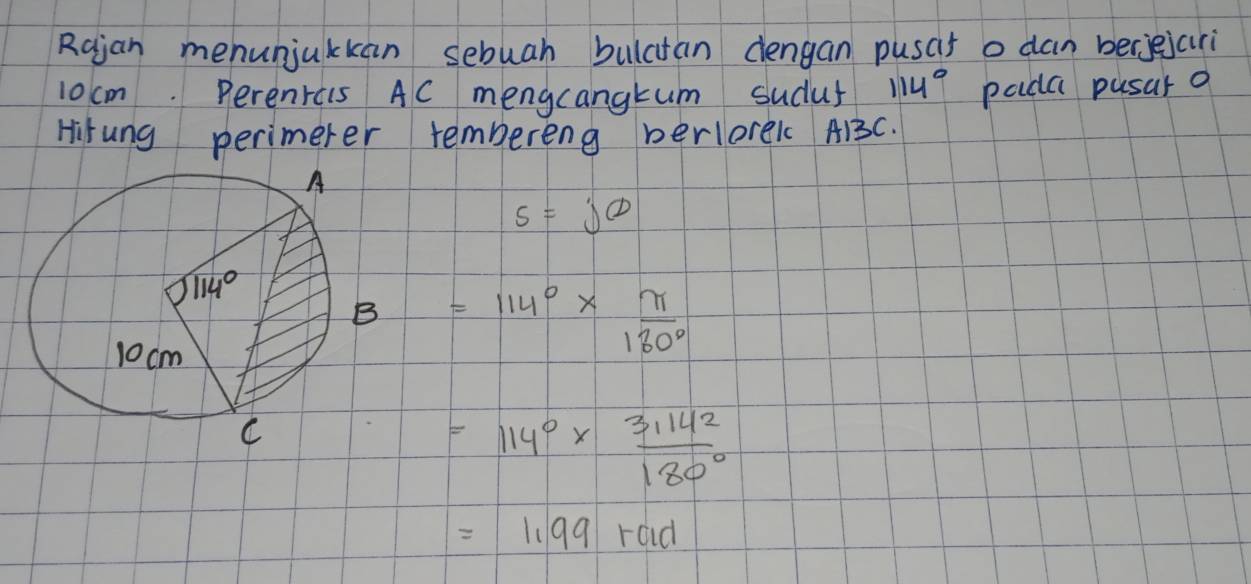 Rajah menunjukkan sebuah bulatan dengan pusat O dan berjejari
10cm. Perentas AC mengcangkum sudut 114° pada pusat O
Hitung perimeter tembereng berlorek ABC.
A
s = jθ
114°
B
= 114° × π/180°
10 cm
C
= 114° × 3.142/180°
= 1.99 rad